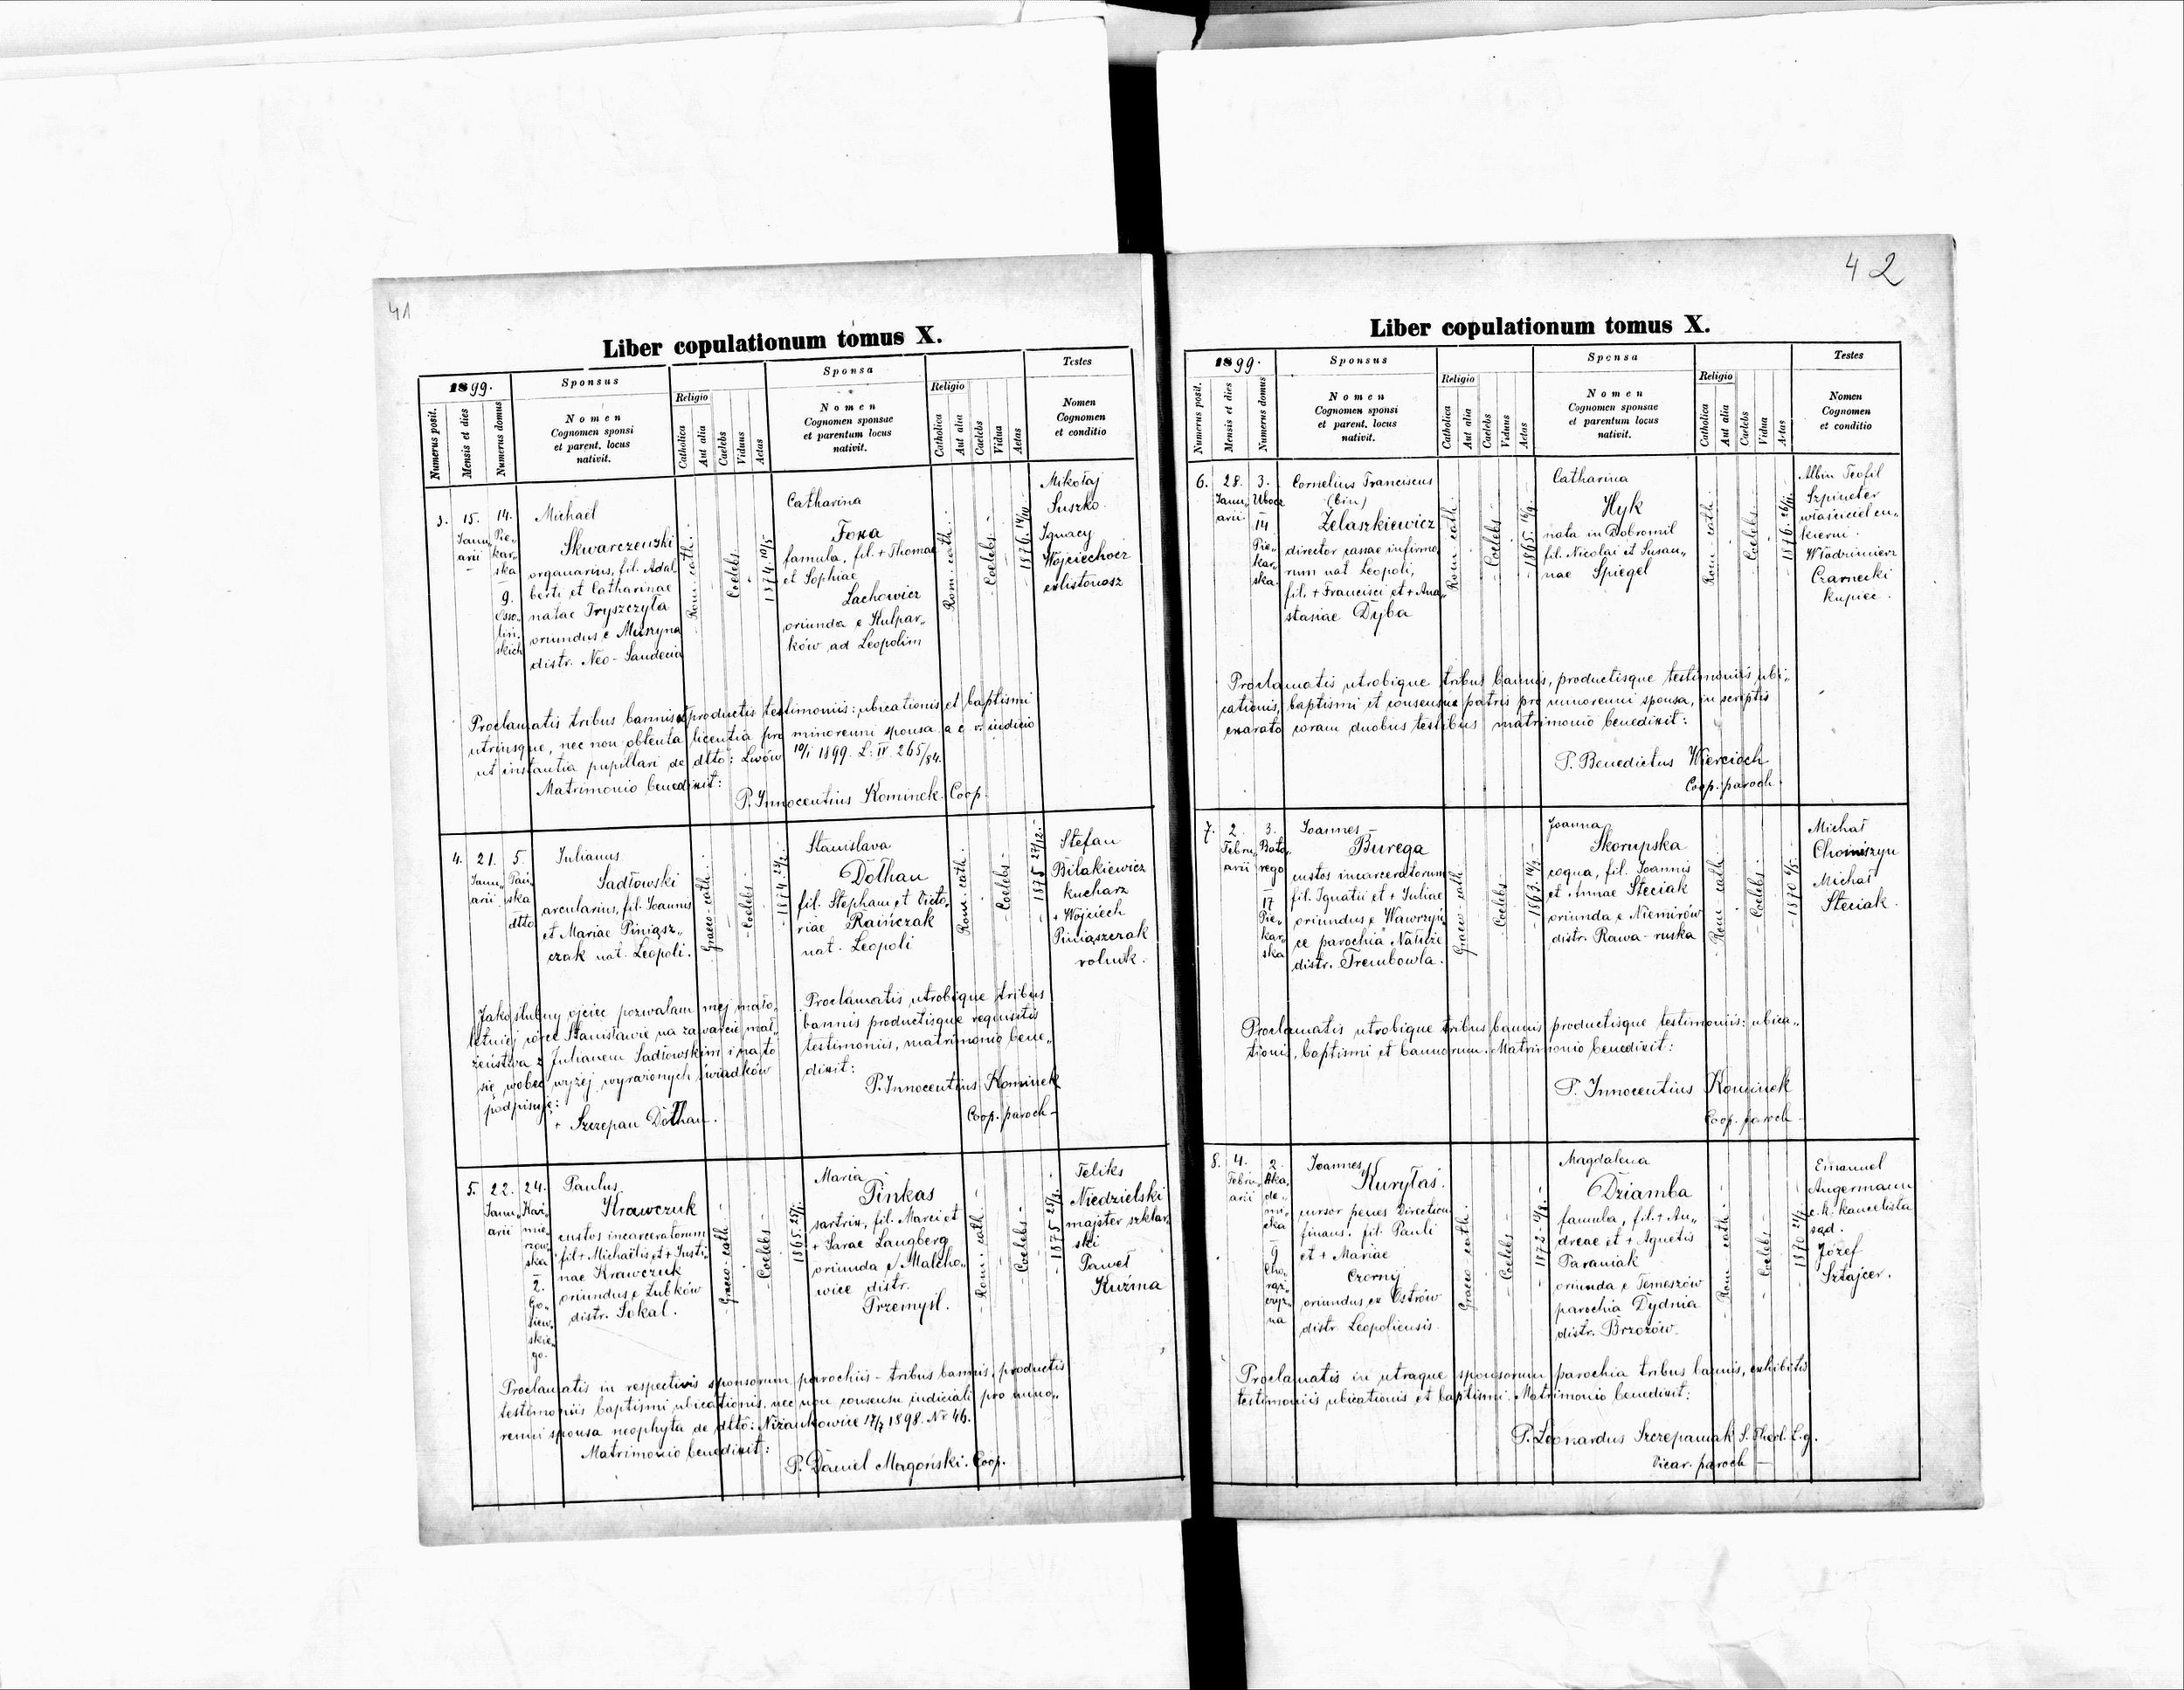 41
Liber copulationum tomus X.
1899.
Sponsus
Sponsa
Testes
Numerus posit.
Mensis et dies
Numerus domus
Nomen
Cognomen sponsi
et parent. locus
nativit.
Religio
Catholica
Aut alia
Caelebs
Viduus
Aetas
Nomen
Cognomen sponsae
et parentum locus
nativit.
Religio
Catholica
Aut alia
Caelebs
Vidua
Aetas
Nomen
Cognomen
et conditio
3.
15.
Janu„
arii
14.
Pie„
kar„
ska
9.
Osso„
liń„
skich
Michaël
Skwarczeński
organarius, fil. Adal„
berti et Catharinae
natae Tryszczyła
oriundus e Muszyna
distr. Neo-Sandecia
Rom-cath.
Coelebs
1874 10/5
Catharina
Foxa
famula, fil. + Thomae
et Sophiae
Lachowicz
oriunda e Kulpar„
ków ad Leopolim
Rom.-cath.
Coelebs
1876. 14/10
Mikołaj
Suszko.
Ignacy
Wojciechocz
exlistonosz
Proclamatis tribus bannis et productis testimoniis: ubicationis et baptismi
utriusque, nec non obtenta licentia pro minorenni sponsa a c. r. iudicio
ut instantia pupillari de dtto: Lwów 10/1 1899. L: IV. 265/84.
Matrimonio benedixit:
P. Innocentius Kominek. Coop.
4.
21.
Janu„
arii
5.
Pań„
ska
dtto
Julianus
Sadłowski
arcularius, fil. Joannis
et Mariae Piniasz„
czak nat. Leopoli.
Graeco-cath.
Coelebs
Stanislava
Dołhan
fil. Stephani et Victo„
riae Raińczak
nat. Leopoli
Rom-cath.
Coelebs
1875 27/12.
Stefan
Bilakiewicz
kucharz
+ Wojciech
Piniaszczak
rolnik.
Jako ślubny ojciec pozwalam mej mało„
letniej córce Stanisławie na zawarcie mał„
żeństwa z Julianem Sadłowskim i na to
się wobec wyżej wyrażonych świadków
podpisuję:
+ Szczepan Dołhan.
Proclamatis utrobique tribus
bannis productisque requisitis
testimoniis, matrimonio bene„
dixit:
P. Innocentius Kominek
Coop. paroch
5.
22.
Janu„
arii
24.
Kazi„
mie„
rzow„
ska
2.
Go„
siew„
skie„
go.
Paulus
Krawczuk
custos incarceratorum
fil + Michaëlis et + Justi„
nae Krawczuk
oriundus e Żubków
distr. Sokal.
Graeco-cath.
Coelebs
Maria
Pinkas
sartrix, fil. Marci et
+ Sarae Langberg
oriunda e Malcho„
wice distr.
Przemyśl.
Rom.-cath.
Coelebs
Feliks
Niedzielski
majster szklar„
ski
Paweł
Kuźma
Proclamatis in respectivis sponsorum parochiis - tribus bannis, productis
testimoniis baptismi ubicationis, nec non consensu iudiciali pro mino„
renni sponsa neophyta de dtto: Niżankowice 17/7 1898. Nr 46.
Matrimonio benedixit:
P. Daniel Magoński. Coop.
42
Liber copulationum tomus X.
1899.
Sponsus
Sponsa
Testes
Numerus posit.
Mensis et dies
Numerus domus
Nomen
Cognomen sponsi
et parent. locus
nativit.
Religio
Catholica
Aut alia
Caelebs
Viduus
Aetas
Nomen
Cognomen sponsae
et parentum locus
nativit.
Religio
Catholica
Aut alia
Caelebs
Vidua
Aetas
Nomen
Cognomen
et conditio
6.
28.
Janu„
arii
3.
Ubocz
14
Pie„
kar„
ska.
Cornelius Franciscus
(bin)
Żelaszkiewicz
director cassae infirmo„
rum nat Leopoli,
fil. + Francisci et + Ana„
stasiae Dyba
Rom-cath.
Coelebs
Catharina
Hyk
nata in Dobromil
fil. Nicolai et Susan„
nae Spiegel
Rom-cath.
Coelebs
Albin Teofil
Szpineter
właściciel cu„
kierni.
Włodzimierz
Czarnecki
kupiec.
Proclamatis utrobique tribus bannis, productisque testimoniis ubi„
cationis, baptismi et consensus patris pro minorenni sponsa, in scriptis
exarato coram duobus testibus matrimonio benedixit:
P. Benedictus Wiercioch
Coop. paroch
7.
2.
Febru„
arii
3.
Bato„
rego
17
Pie„
kar„
ska
Joannes
Burega
custos incarceratorum
fil. Ignatii et + Juliae
oriundus e Wawrzyń„
ce parochia Nałuże
distr. Trembowla.
Graeco-cath.
Coelebs
Joanna
Skorupska
coqua, fil. Joannis
et Annae Steciak
oriunda e Niemirów
distr. Rawa-ruska
Rom-cath
Coelebs
Michał
Choiniszyn
Michał
Steciak.
Proclamatis utrobique tribus bannis productisque testimoniis: ubica„
tionis, baptismi et bannorum. Matrimonio benedixit:
P. Innocentius Kominek
Coop. paroch
8.
4.
Febru„
arii
2.
Aka„
de„
mi„
cka
9
Cho„
rąż„
czyz„
na
Joannes
Kurylas.
cursor penes Direction
finans. fil. Pauli
et + Mariae
Czornij
oriundus ex Ostrów
distr. Leopoliensis.
Graeco-cath.
Coelebs
Magdalena
Dziamba
famula, fil. + An„
dreae et + Agnetis
Paraniak
oriunda e Temeszów
parochia Dydnia
distr. Brzozów.
Rom cath
Coelebs
Emanuel
Angermann
c. k. kancelista
sąd.
Józef
Sztajcer.
Proclamatis in utraque sponsorum parochia tribus bannis, exhibitis
testimoniis ubicationis et baptismi. Matrimonio benedixit:
P. Leonardus Szczepaniak S. Theol. L.g.
Vicar. paroch